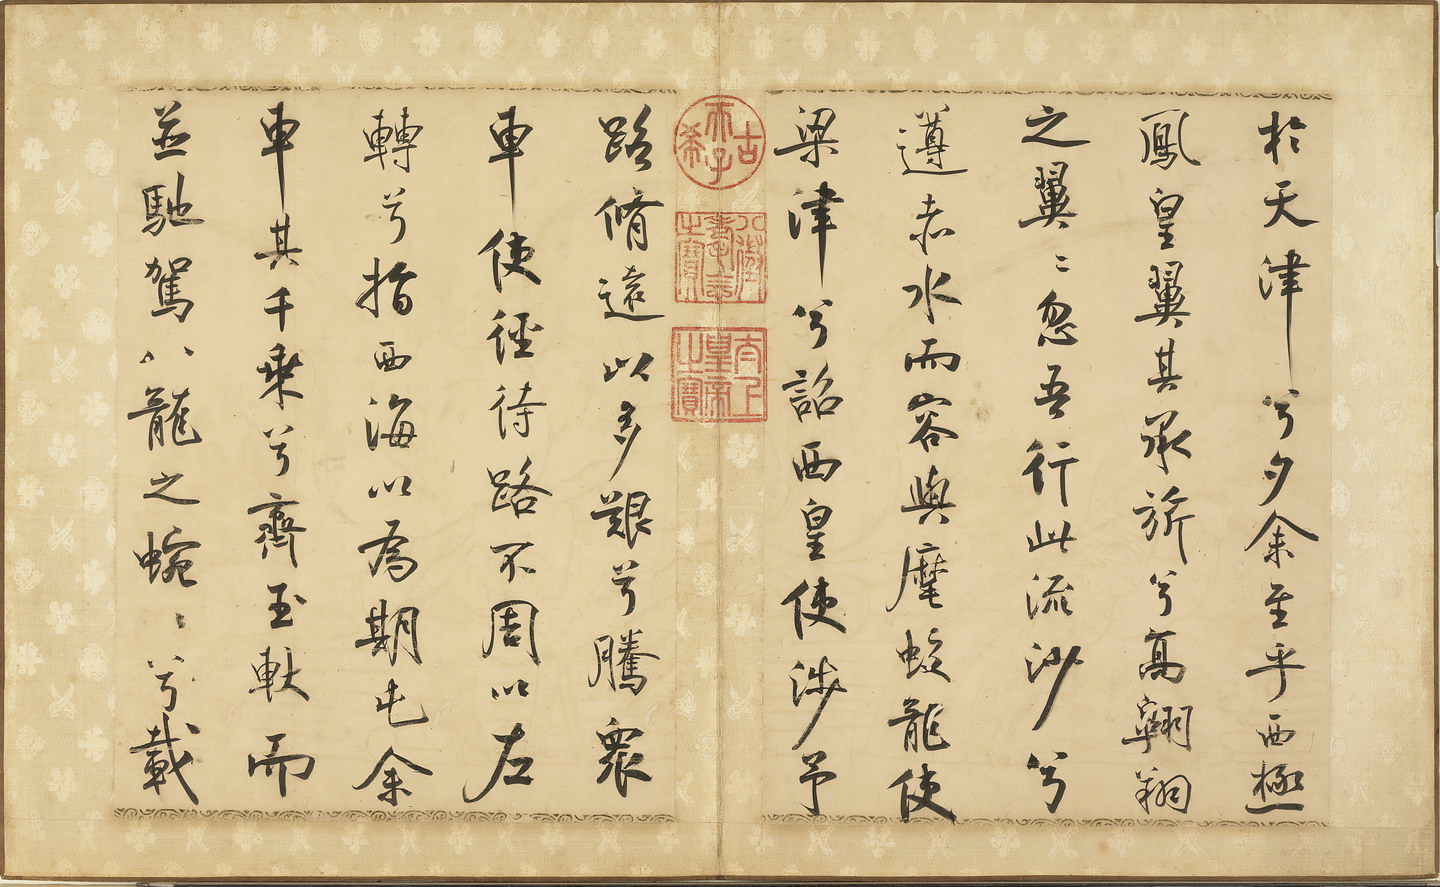 於天津兮夕余至乎西極
鳳皇翼其承旂兮高翱翔
之翼〻忽吾行此流沙兮
遵赤水而容與麾蛟龍使
梁津兮詔西皇使涉予
路脩遠以多艱兮騰衆
車使徑待路不周以左
轉兮指西海以為期屯余
車其千乘兮齊玉軑而
並馳駕八龍之蜿〻兮載
古希天子
八徵耄念之寶
太上皇帝之寶